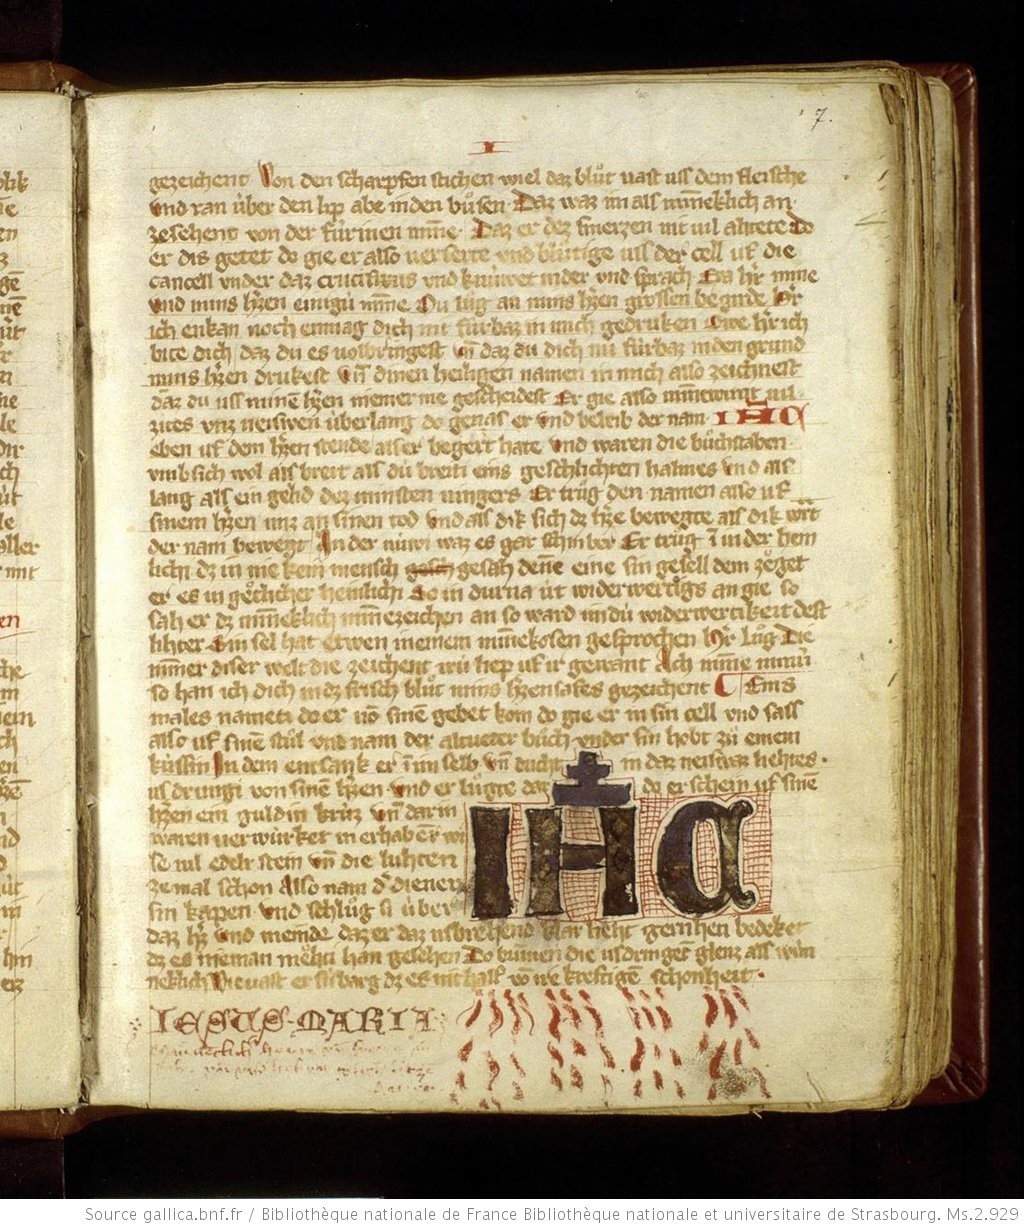 7.
I
gezeichent Von den scharpfen stichen wiel daz blůt vast uss dem fleische
vnd ran über den lip abe in den bůsen Daz waz im als minneklich an
zesehent von der fúrinen minne Daz er dez smerzen nit vil ahtete Do
er dis getet do gie er also verserte vnd blůtige uss der cell uf die
cancell vnder daz crucifixus vnd knúwet nider vnd sprach Eya h'r mine
vnd mins h'zen einigú minne Nu lůg an mins h'zen grossen begirde h'r
ich enkan noch enmag dich nit fúrbaz in mich gedruken Owe h'r ich
bite dich daz du es volbringest vn̄ daz du dich nu fúrbaz in den grund
mins h'zen drukest vn̄ dinen heiligen namen in mich also zeichnest
daz du uss minē h'zen niemer me gescheidest Er gie also minnewunt vil
zites vnz neiswen úberlang do genas er vnd beleib der nam IHC
eben uf dem h'zen stende als er begert hate vnd waren die bůchstaben
vmb sich wol als breit als dú breiti eins geschlichten halmes vnd als
lang als ein gelid dez minsten vingers Er trůg den namen also uf
sinem h'zen unz an sinen tod vnd als dik sich dz h'ze bewegte als dik wart
der nam bewegt In der núwi waz es gar schinber Er trůg ī in der hein
lichi dz in nie kein mensch gesah denne eine sin gesell dem zoͤget
er es in goͤtlicher heinlichi So in dur na út widerwertigs an gie so
sah er dz minneklich minnezeichen an so ward im dú widerwertikeit dest
lihter Sin sel hat etwen in einem minnekosen gesprochen h'r lůg Die
minner diser welt die zeichent irú liep uf ir gewant Ach minne minú
so han ich dich in dz frisch blůt mins h'zen safes gezeichent Eins
males nameti do er vō sinē gebet kom do gie er in sin cell vnd sass
also uf sinē stůl vnd nam der altveter bůch vnder sin hobt zů einem
kússin In dem entsank er im selb vn̄ ducht in daz neiswaz liehtes
us drungi von sinē h'zen vnd er lůgte dar do er schein uf sinē
h'zen ein guldin krúz vn̄ darin
waren verwúrket in erhabēr wi
se vil edelr stein vn̄ die luhten
ze mal schon Also nam d' diener
sin kapen vnd schlůg si úber
IHC
daz h'z vnd meinde daz er daz usbrehend klar lieht gern heti bedeket
dz es nieman moͤhti han gesehen Do bunnen die usdringēt glenz als wun
neklich wie vast er si barg dz es nit half vō irre kreftigē schonheit
IESUS MARIA